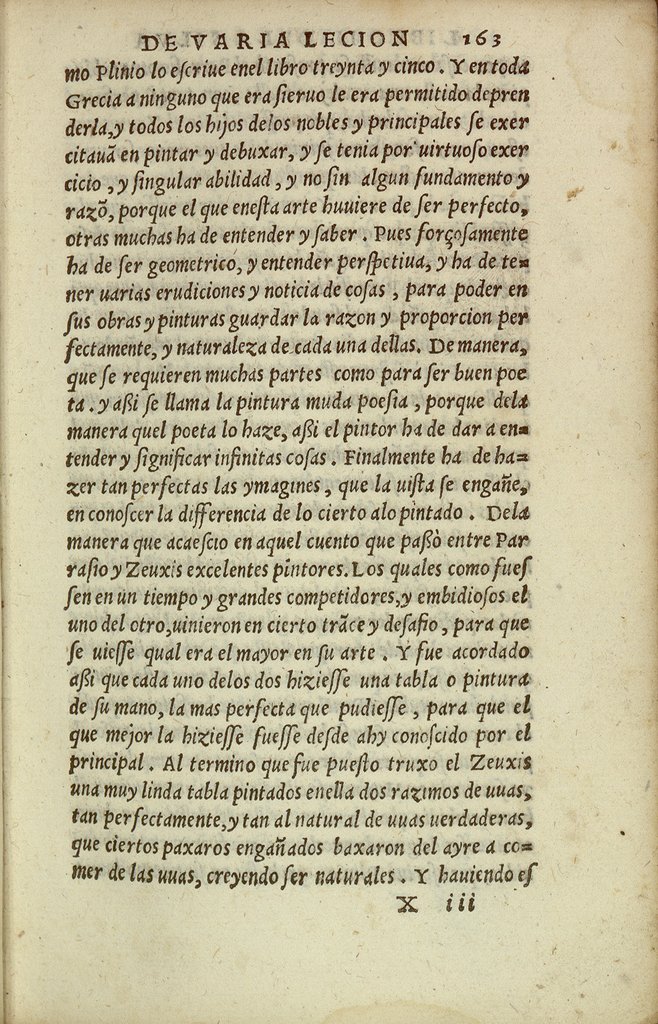 DE VARIA LECION 163
mo Plinio lo eſcriue enel libro treynta y cinco. Y en toda
Grecia a ninguno que era ſieruo le era permitido depren
derla, y todos los hijos delos nobles y principales ſe exer
citauã en pintar y debuxar, y ſe tenia por uirtuoſo exer
cicio, y ſingular abilidad, y no ſin algun fundamento y
razõ, porque el que eneſta arte huuiere de ſer perfecto,
otras muchas ha de entender y ſaber. Pues forçoſamente
ha de ſer geometrico, y entender perſpetiua, y ha de te=
ner uarias erudiciones y noticia de coſas, para poder en
ſus obras y pinturas guardar la razon y proporcion per
fectamente, y naturaleza de cada una dellas. De manera,
que ſe requieren muchas partes como para ſer buen poe
ta. y aßi ſe llama la pintura muda poeſia, porque dela
manera quel poeta lo haze, aßi el pintor ha de dar a en=
tender y ſignificar infinitas coſas. Finalmente ha de ha=
zer tan perfectas las ymagines, que la uiſta ſe engañe,
en conoſcer la differencia de lo cierto alo pintado. Dela
manera que acaeſcio en aquel cuento que paßò entre Par
raſio y Zeuxis excelentes pintores. Los quales como fueſ
ſen en un tiempo y grandes competidores, y embidioſos el
uno del otro, uinieron en cierto trãce y deſafio, para que
ſe uieſſe qual era el mayor en ſu arte. Y fue acordado
aßi que cada uno delos dos hizieſſe una tabla o pintura
de ſu mano, la mas perfecta que pudieſſe, para que el
que mejor la hizieſſe fueſſe deſde ahy conoſcido por el
principal. Al termino que fue pueſto truxo el Zeuxis
una muy linda tabla pintados enella dos razimos de uuas,
tan perfectamente, y tan al natural de uuas uerdaderas,
que ciertos paxaros engañados baxaron del ayre a co=
mer de las uuas, creyendo ſer naturales. Y hauiendo eſ
X iii